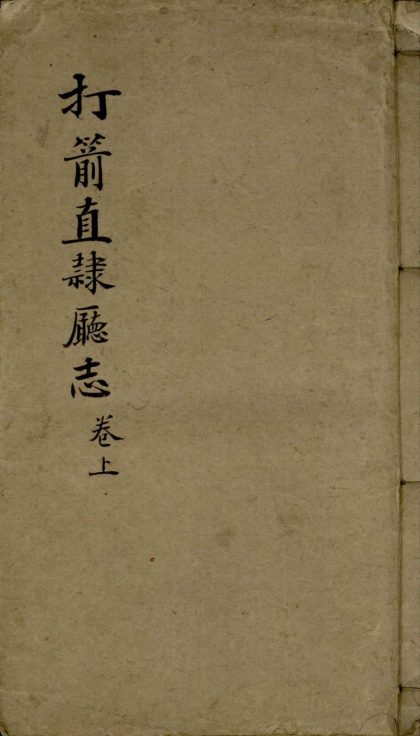 打箭直隸廳志
卷上